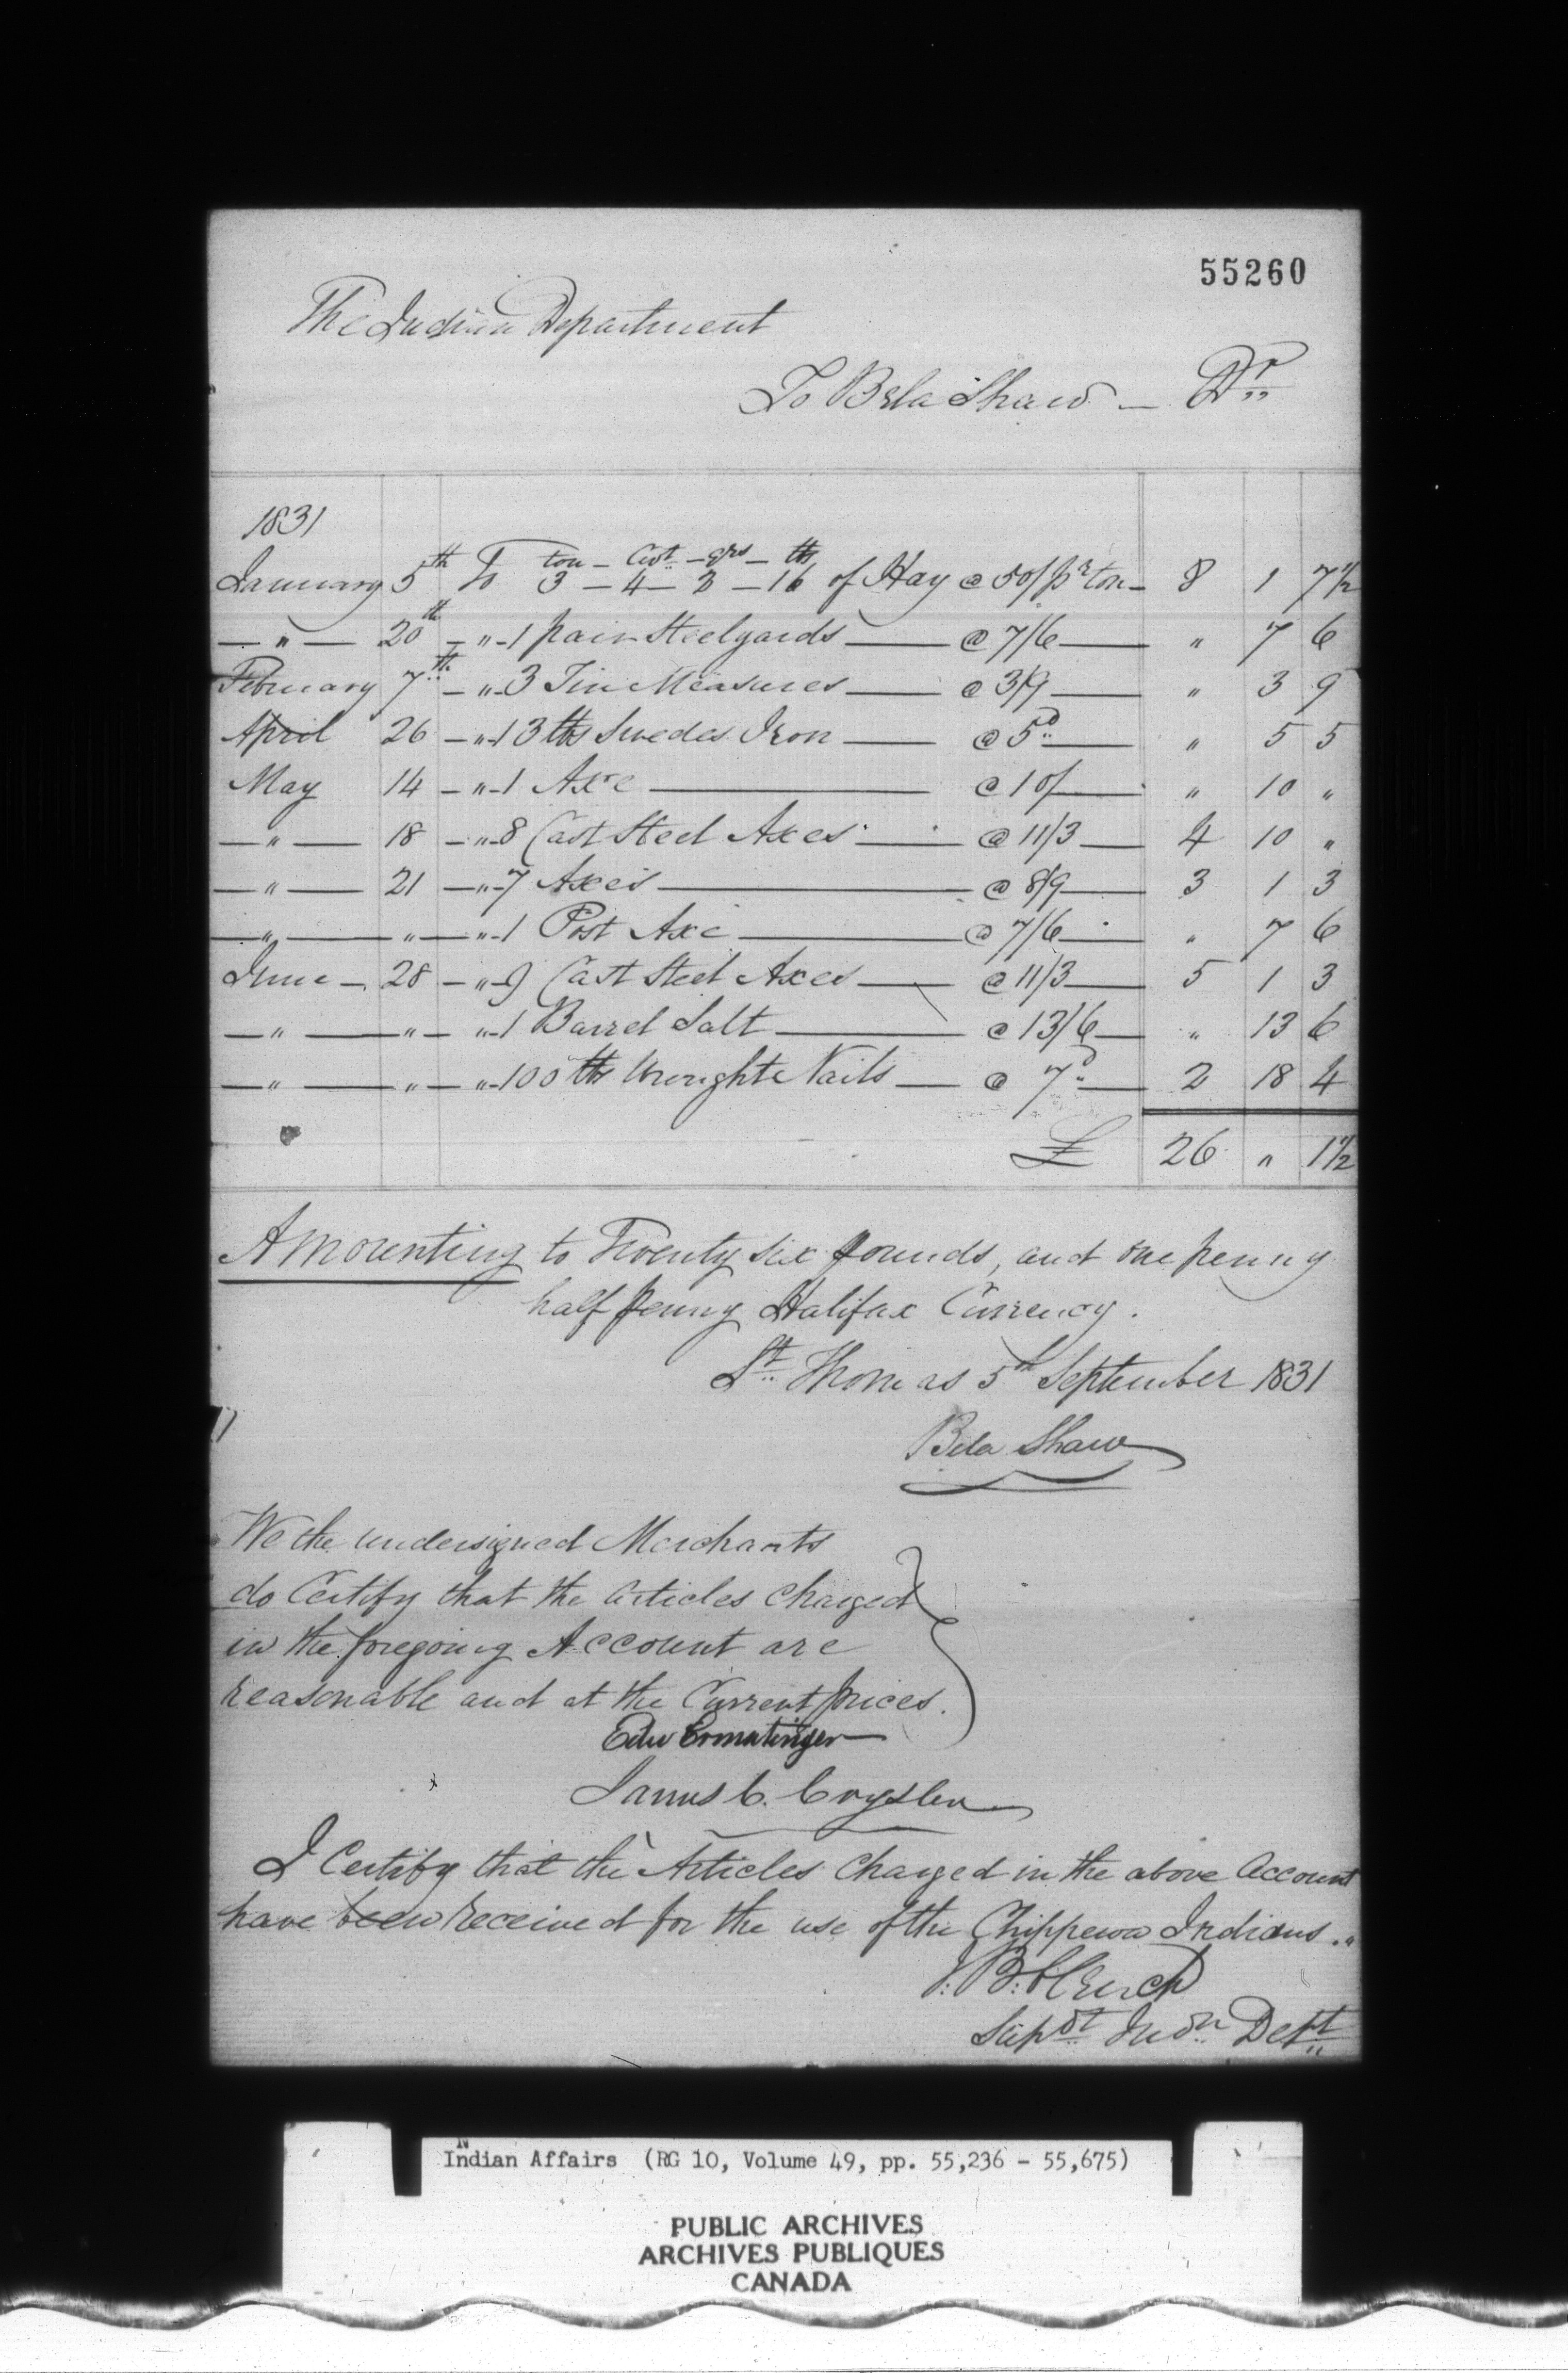 55260
The Indian Department
To Bela Shaw — Dr
1831
ton – Cwt – qrs – lbs
January 5th To 3 – 4 – 2 – 16 of Hay @ 50/ pr ton – 8 1 7 1/2
— " — 20th – " – 1 pair Steelyards — @ 7/6 — " 7 6
February 7th – " – 3 Tin Measures — @ 3/9 — " 3 9
April 26 – " – 13 lbs Swedes Iron — @ 5d — " 5 5
May 14 – " – 1 Axe — @ 10/ — " 10 "
— " — 18 – " – 8 Cast Steel Axes — @ 11/3 — 4 10 "
— " — 21 – " – 7 Axes — @ 8/9 — 3 1 3
— " — " – " – 1 Post Axe — @ 7/6 — " 7 6
June – 28 – " – 9 Cast Steel Axes — @ 11/3 — 5 1 3
— " — " – " – 1 Barrel Salt — @ 13/6 — " 13 6
— " — " – " – 100 lbs Wrought Nails — @ 7d — 2 18 4
£ 26 " 1 1/2
Amounting to Twenty six pounds, and one penny
half penny Halifax Currency.
St. Thomas 5th September 1831
Bela Shaw
We the undersigned Merchants
do Certify that the Articles Charged
in the foregoing Account are
reasonable and at the Current prices.
Edw Ermatinger
James C. Crysler
I Certify that the Articles Charged in the above Account
have been received for the use of the Chippewa Indians.
J. B. Clench
Supdt Indn Dept
Indian Affairs (RG 10, Volume 49, pp. 55,236 - 55,675)
PUBLIC ARCHIVES
ARCHIVES PUBLIQUES
CANADA